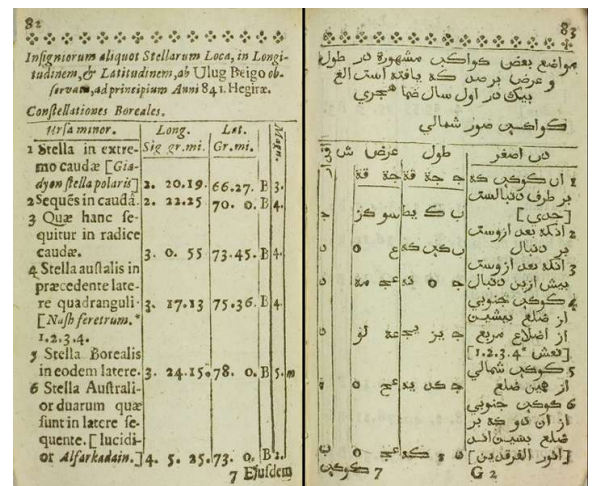 82
Insigniorum aliquot Stellarum Loca, in Longi-
tudinem, & Latitudinem, ab Ulug Beigo ob-
servata, ad principium Anni 841. Hegiræ.
Constellationes Boreales.
Ursa minor. Long. Lat. Magn.
Sig gr. mi. Gr. mi.
1 Stella in extre-
mo caudæ [Gia-
dy on stella polaris] 2. 20.19. 66.27. B 3.
2 Sequēs in caudā. 2. 22.25 70. 0. B 4.
3 Quæ hanc se-
quitur in radice
caudæ. 3. 0. 55 73.45. B 4.
4 Stella australis in
præcedente late-
re quadranguli 3. 17.13 75.36. B 4.
[Nash feretrum.*
1.2.3.4.
5 Stella Borealis
in eodem latere. 3. 24.15. 78. 0. B 5. m
6 Stella Australi-
or duarum quæ
sunt in latere se-
quente. [lucidi-
or Alfarkadain.] 4. 5. 25. 73. 0. B 2.
7 Ejusdem
83
مواضع بعض كواكب مشهوره در طول
و عرض برصد كه يافته است الغ
بيك در اول سال ضما هجري
كواكب صور شمالي
دب اصغر طول عرض
1 ان كوكب كه
بر طرف دنبالست
[جدي]
2 انكه بعد ازوست
بر دنبال
3 انكه بعد ازوست
پيش ازبن دنبال
4 كوكب جنوبي
از ضلع پيشين
از اضلاع مربع
[نعش * 1.2.3.4]
5 كوكب شمالي
از همين ضلع
6 كوكب جنوبي
از ان دو كه بر
ضلع پسين اند
[انور الفرقدين]
7 كوكب
G 2